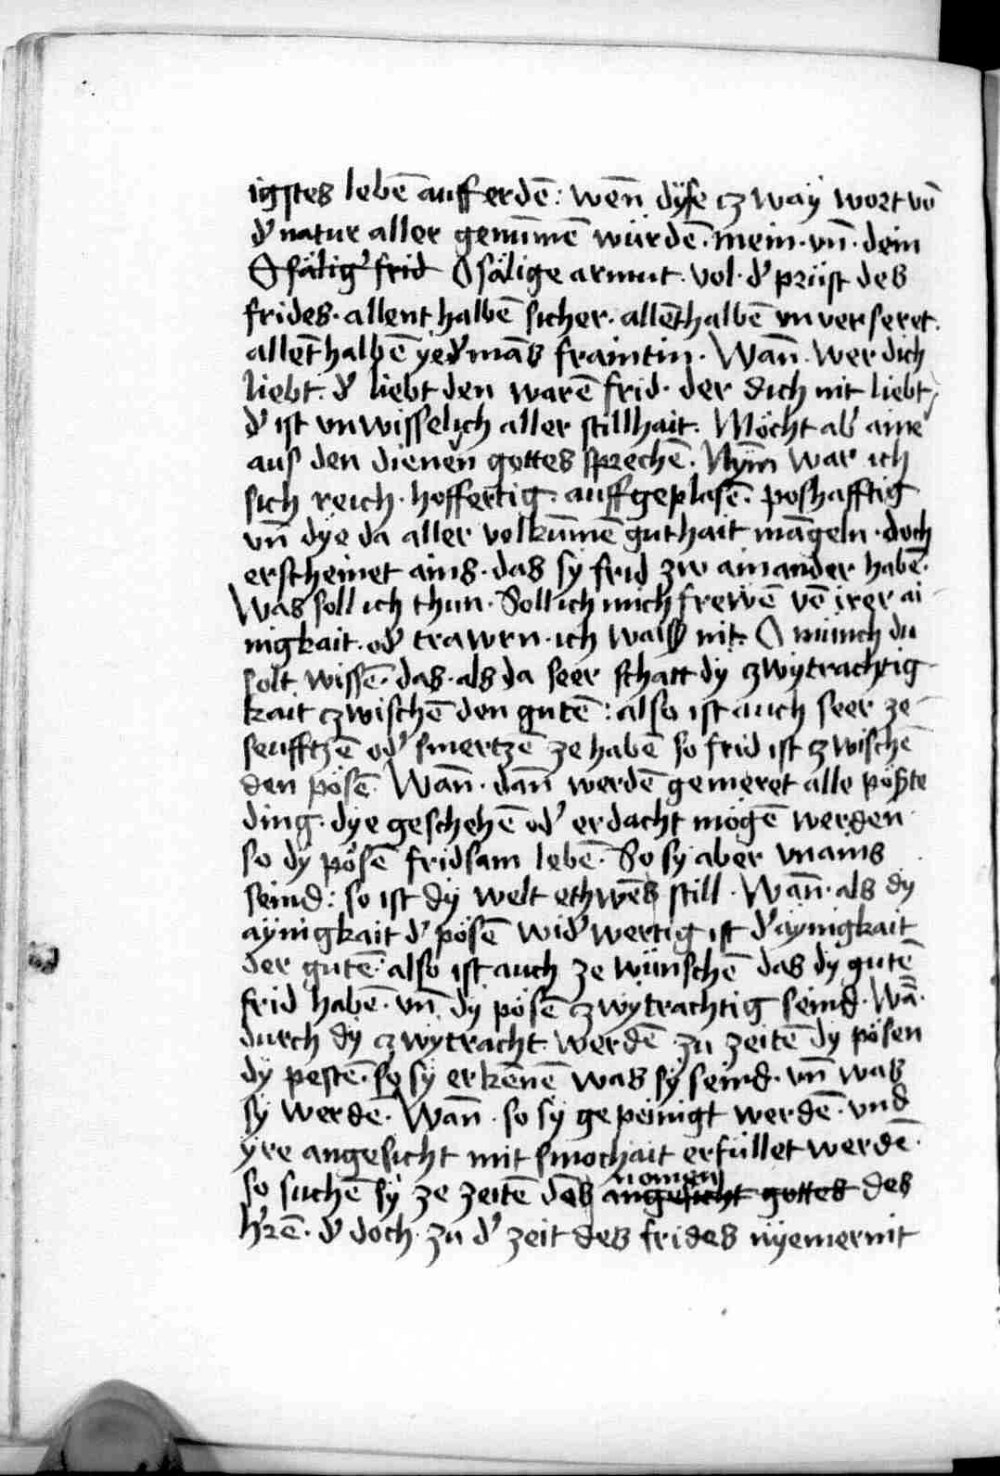 igstes lebē auff erdē: wen̄ dyse czway wort vō
d' natur aller genūmē würdē. mein. vn̄. dein
O sälig' frid O sälige armut. vol. d' prüst des
frides. allenthalbē sicher. allēthalbē vnverseret.
allēthalbē yed'māns fraintin. Wan̄. wer dich
liebt. d' liebt den warē frid. der dich nit liebt
d' ist vnwisselich aller stillhait. Möcht ab' aine'
aus den dienen gottes sprechē. Nym̄ war ich
sich reich. hoffertig. auffgeplasē. poshafftig
vn̄ dye da aller volkūmē guthait māgeln. doch
erscheinet ains. das sy frid zw ainander habē.
Was soll ich thun. Soll ich mich frewē vō irer ai
nigkait. od' trawrn. ich waiss nit. O münch du
solt wissē. das. als da seer schatt dy zwytrachtig
kait czwischē den gutē: also ist auch seer ze
seufftzē od' smertzē ze habē so frid ist czwischē
den pösē. Wan̄. dan̄ werdē gemeret alle pößte
ding. dye geschehē od' erdacht mögē werden
so dy pösē fridsam lebē. So sy aber vnains
seind: so ist dy welt ethwēs still. Wan̄. als dy
aynigkait d' pösē wid'wertig ist d' aynigkait
der gutē: also ist auch ze wünschē das dy gutē
frid habē. vn̄ dy pösē czwytrachtig seind. Wā.
durch dy czwytracht. werdē zu zeitē dy pösen
dy pestē. so sy erkēnē was sy seind. vn̄ was
sy werdē. Wan̄. so sy gepeinigt werdē. vnd
yre angesicht mit smochait erfüllet werdē.
so suchē sy ze zeitē des angesicht gottes des
h'rē. d' doch zu d' zeit des frides nyemer nit